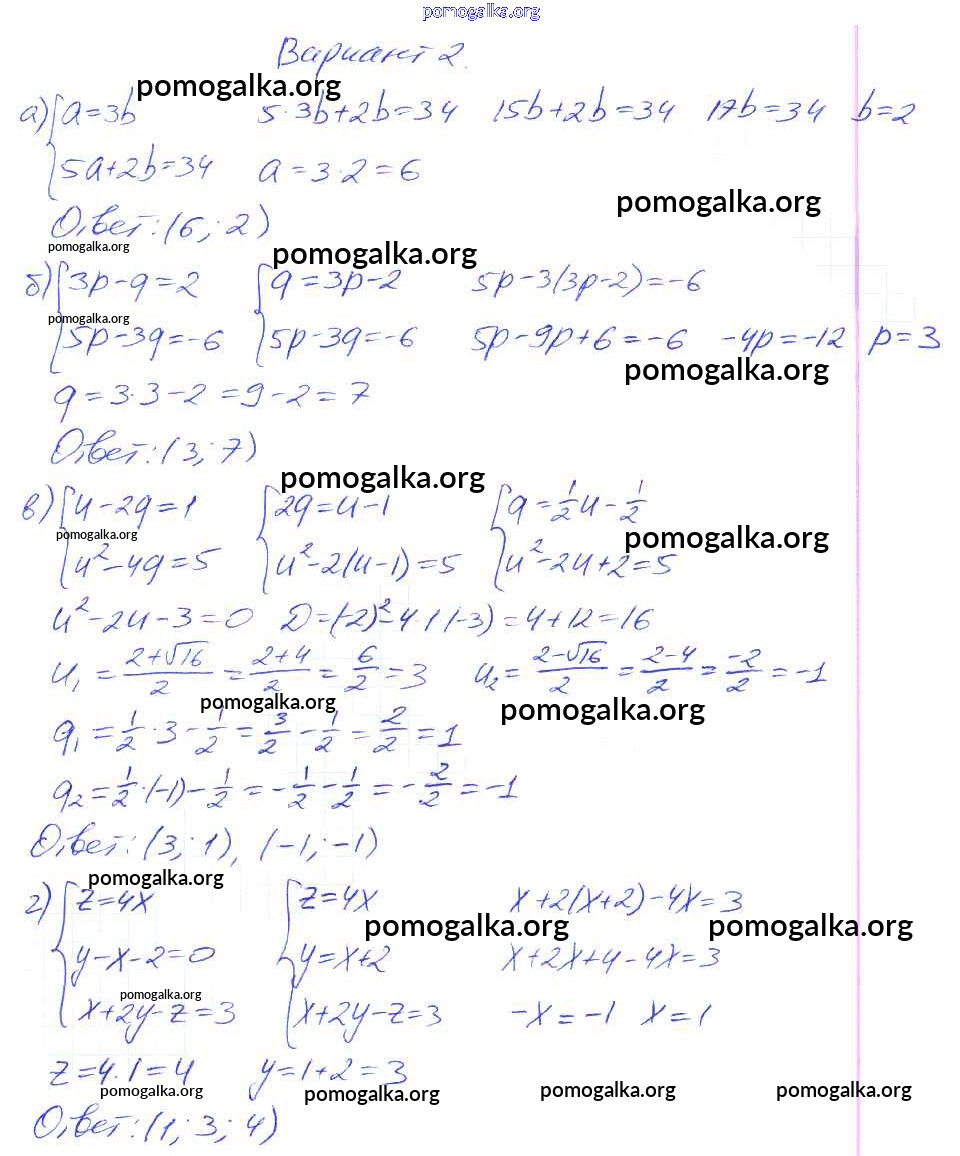 pomogalka.org
Вариант 2.
pomogalka.org
а) { a=3b   5·3b+2b=34   15b+2b=34   17b=34   b=2
5a+2b=34   a=3·2=6
pomogalka.org
Ответ: (6; 2)
pomogalka.org
pomogalka.org
б) { 3p-q=2   { q=3p-2   5p-3(3p-2)=-6
pomogalka.org
5p-3q=-6   5p-3q=-6   5p-9p+6=-6   -4p=-12   p=3
pomogalka.org
q=3·3-2=9-2=7
Ответ: (3; 7)
pomogalka.org
в) { u-2q=1   { 2q=u-1   { q=1/2u-1/2
pomogalka.org
pomogalka.org
u²-4q=5   u²-2(u-1)=5   u²-2u+2=5
u²-2u-3=0   D=(-2)²-4·1·(-3)=4+12=16
u₁=(2+√16)/2=(2+4)/2=6/2=3   u₂=(2-√16)/2=(2-4)/2=-2/2=-1
pomogalka.org
pomogalka.org
q₁=1/2·3-1/2=3/2-1/2=2/2=1
q₂=1/2·(-1)-1/2=-1/2-1/2=-2/2=-1
Ответ: (3; 1), (-1; -1)
pomogalka.org
г) { z=4x   { z=4x   x+2(x+2)-4x=3
pomogalka.org
pomogalka.org
y-x-2=0   y=x+2   x+2x+4-4x=3
pomogalka.org
x+2y-z=3   x+2y-z=3   -x=-1   x=1
z=4·1=4   y=1+2=3
pomogalka.org
pomogalka.org
pomogalka.org
pomogalka.org
Ответ: (1; 3; 4)